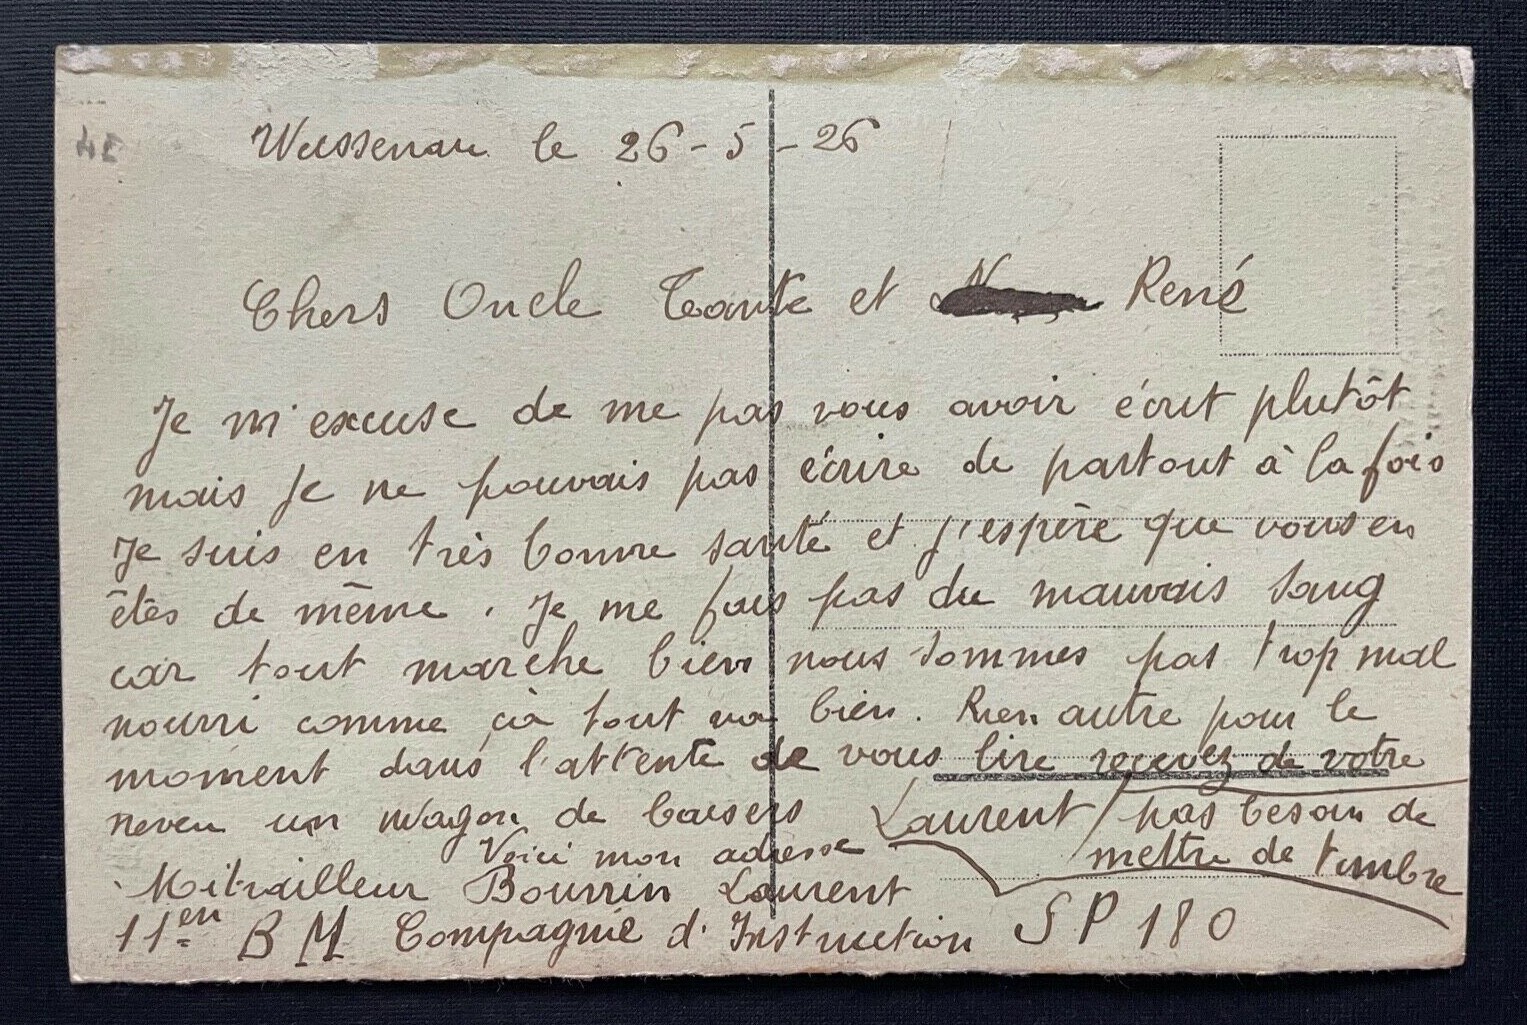 4E
Weissenau le 26-5-26
Chers Oncle Tante et René
Je m'excuse de me pas vous avoir écrit plutôt
mais je ne pouvais pas écrire de partout à la fois
Je suis en très bonne santé et j'espère que vous en
êtes de même. Je me fais pas du mauvais sang
car tout marche bien nous sommes pas trop mal
nourri comme çà tout va bien. Rien autre pour le
moment dans l'attente de vous lire recevez de votre
neveu un wagon de baisers Laurent
pas besoin de
mettre de timbre
Voici mon adresse
Mitrailleur Bourrin Laurent
11en B M Compagnie d'Instruction SP 180